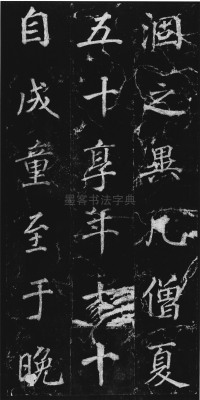 涸之異凡僧夏
五十享年十
自成童至于晚
墨客书法字典